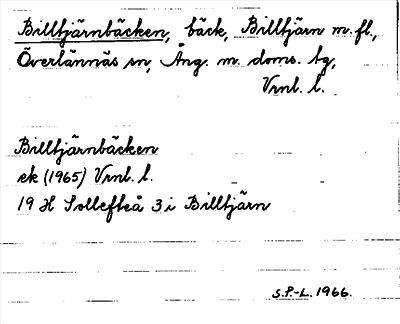 Billtjärnbäcken, bäck, Billtjärn m. fl.,
Överlännäs sn, Ång. m. doms. tg,
Vrnl. l.
Billtjärnbäcken
ek (1965) Vrnl. l.
19 H Sollefteå 3 i Billtjärn
S.P.-L. 1966.